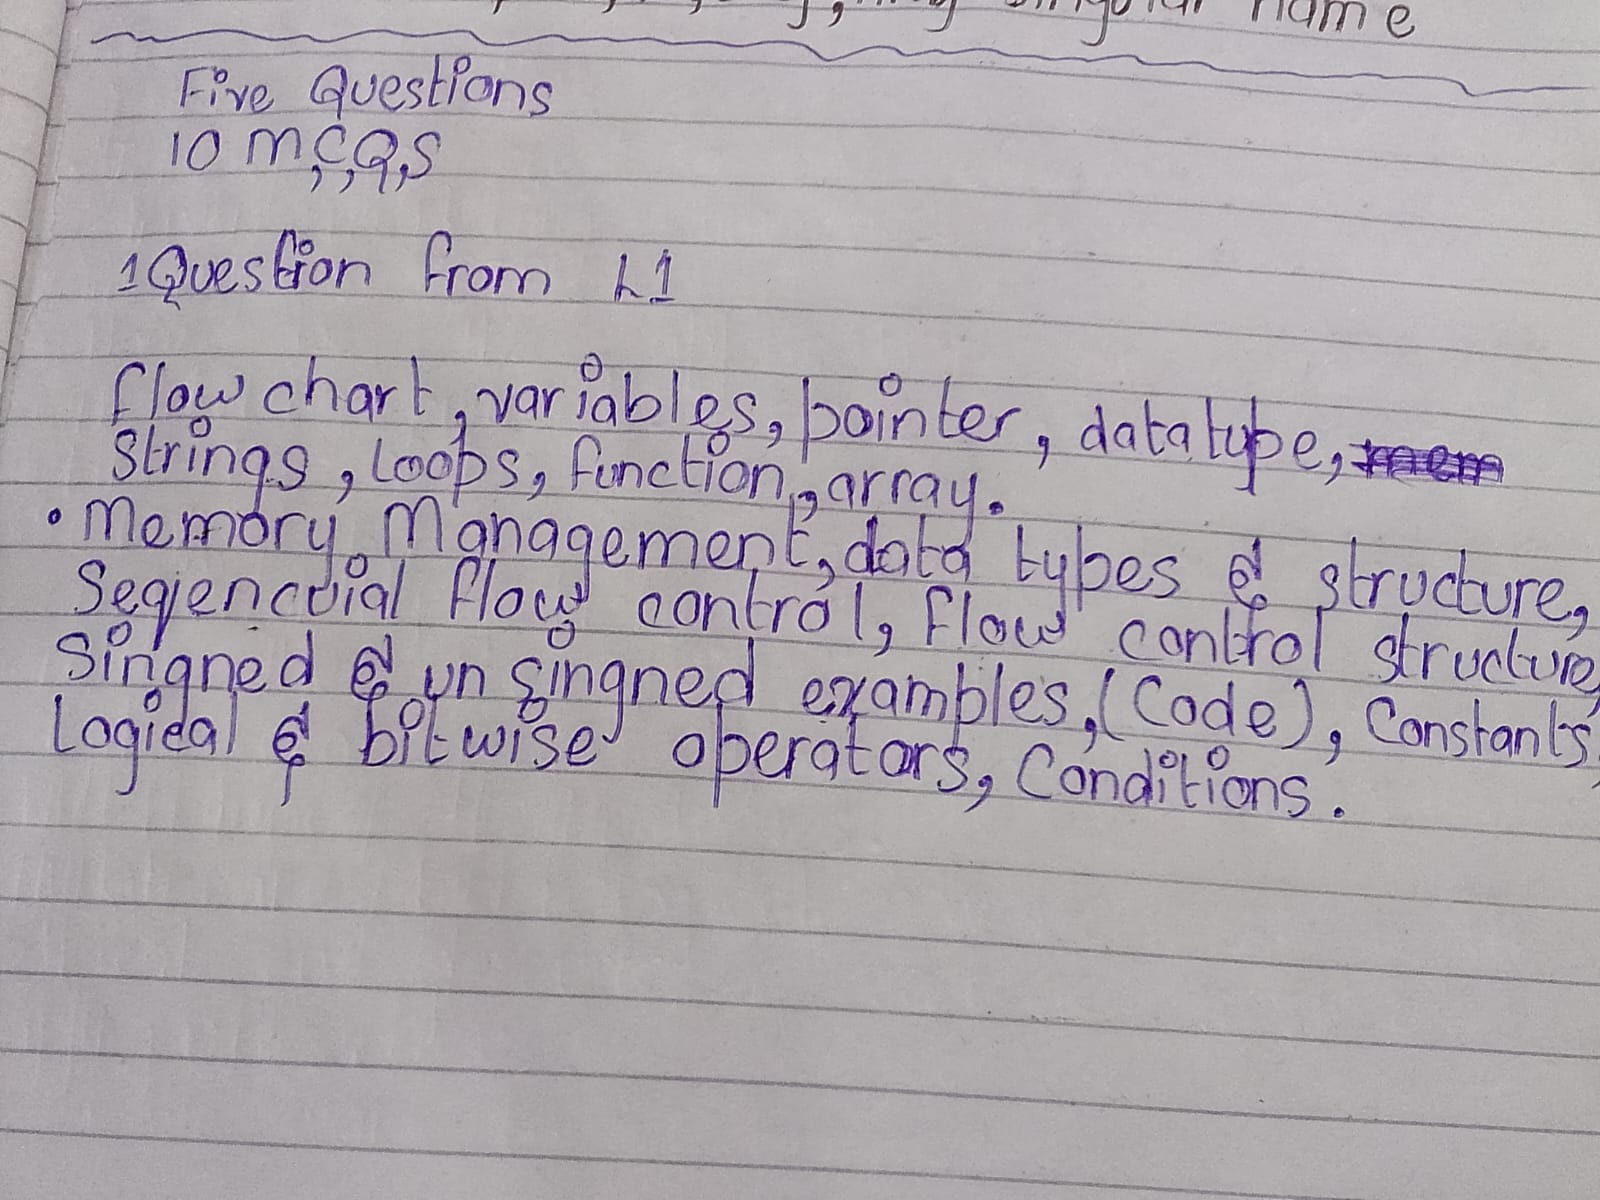 singular name
Five Questions
10 M,C,Q,S
1 Question from L1
flow chart, variables, pointer, datatype,
Strings, Loops, function, array.
• Memory Management, data types & structure,
Seqiencuial flow control, flow control structure,
Singned & un singned examples, (Code), Constants,
Logical & bitwise operators, Conditions.